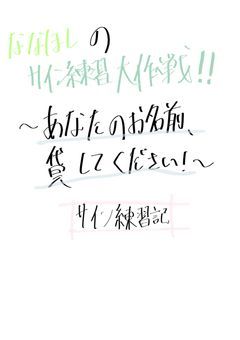 ななはしの
サイン練習大作戦!!
~あなたのお名前、
貸してください!~
サイン練習記